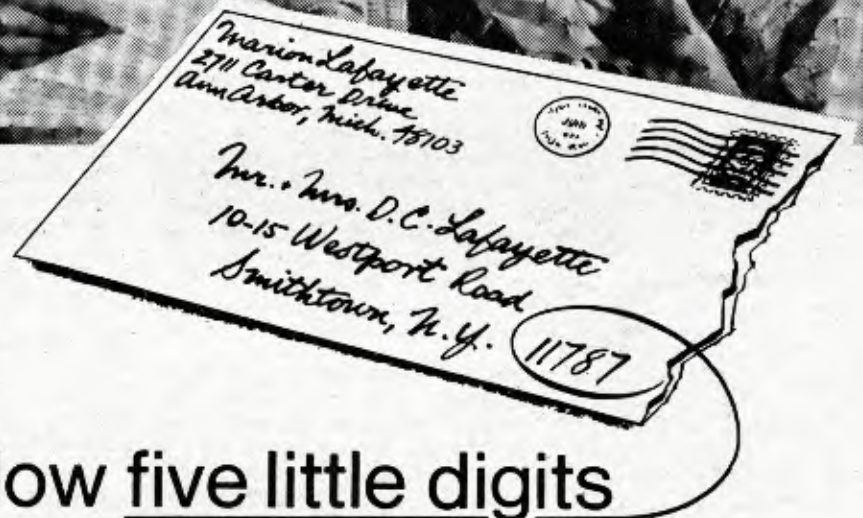 Marion Lafayette
2711 Carter Drive
Ann Arbor, Mich. 48103
Mr. + Mrs. D. C. Lafayette
10-15 Westport Road
Smithtown, N.Y. 11787
ow five little digits